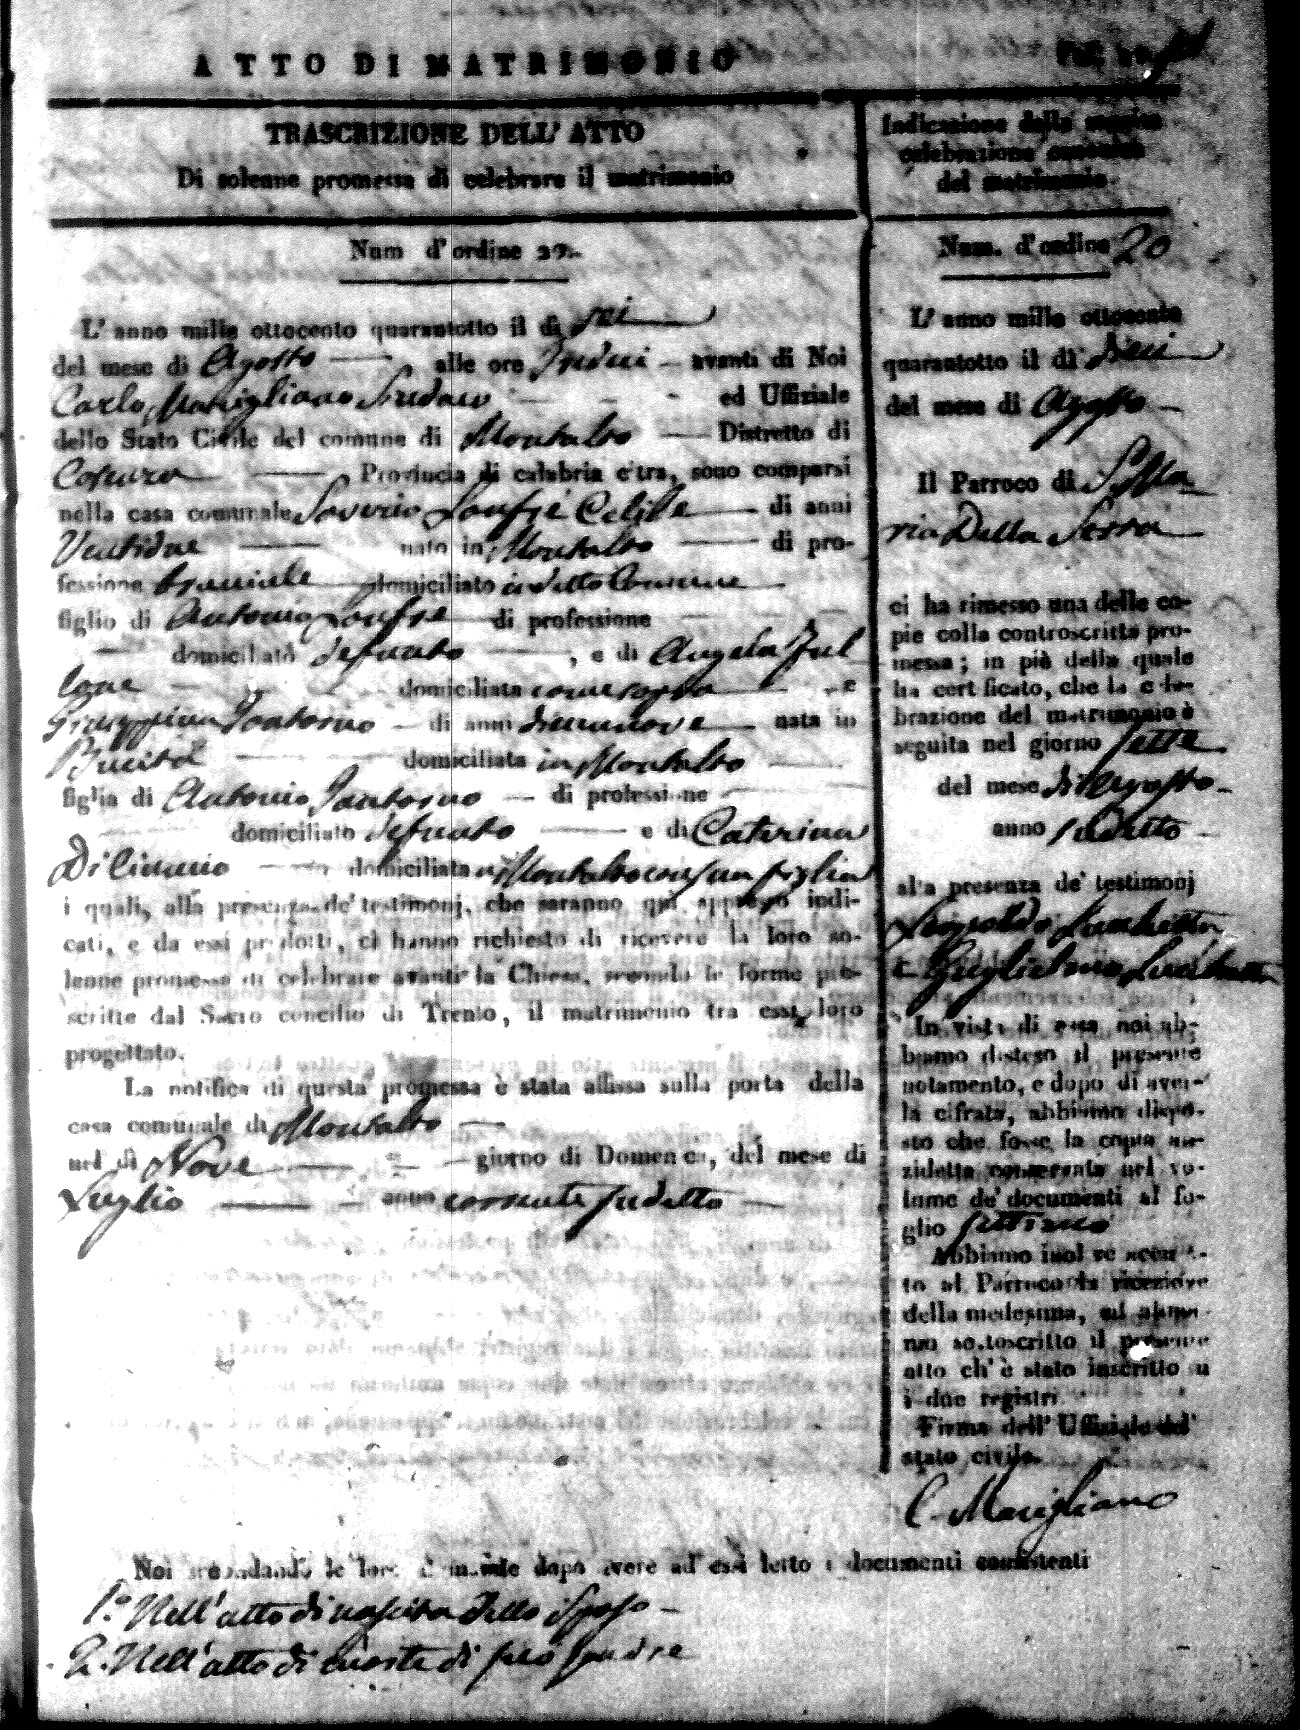 ATTO DI MATRIMONIO
TRASCRIZIONE DELL' ATTO
Di solenne promessa di celebrare il matrimonio
Num d'ordine 27.
L' anno mille ottocento quarantotto il di sei
del mese di Agosto alle ore tredici avanti di Noi
Carlo Marigliano Sindaco ed Uffiziale
dello Stato Civile del comune di Montalto Distretto di
Cosenza Provincia di calabria citra, sono comparsi
nella casa comunale Saverio Celibe di anni
Ventidue nato in Montalto di pro-
fessione domiciliato in detto Comune
figlio di Antonio di professione
domiciliato defunto , e di Angela
domiciliata come sopra e
Giuseppina Santoruo di anni diecinnove nata in
domiciliata in Montalto
figlia di Antonio Santoruo di professione
domiciliato defunto e di Caterina
Di domiciliata in Montalto con sua figlia
i quali, alla presenza de' testimonj, che saranno qui appresso indi-
cati, e da essi prodotti, ci hanno richiesto di ricevere la loro so-
lenne promessa di celebrare avanti la Chiesa, secondo le forme pre-
scritte dal Sacro concilio di Trento, il matrimonio tra essi loro
progettato.
La notifica di questa promessa è stata affissa sulla porta della
casa comunale di Montalto
nel dì Nove giorno di Domenica, del mese di
Luglio anno corrente sudetto
Indicazione della seguita
celebrazione
del matrimonio.
Num. d'ordine 20
L' anno mille ottocento
quarantotto il dì dieci
del mese di Agosto
Il Parroco di S. Ma
ria Della Serra
ci ha rimesso una delle co-
pie colla controscritta pro-
messa; in piè della quale
ha certificato, che la cele-
brazione del matrimonio è
seguita nel giorno sette
del mese di Agosto
anno sudetto
alla presenza de' testimonj
Leopoldo
e Guglielmo
In vista di essa noi ab-
biamo disteso il presente
notamento, e dopo di aver-
la cifrata, abbiamo dispo-
sto che fosse la copia an-
zidetta conservata nel vo-
lume de' documenti al fo-
glio settimo
Abbiamo inoltre accu-
to al Parroco la ricezione
della medesima, ed abbia-
mo sottoscritto il presente
atto ch' è stato inscritto su
i due registri
Firma dell' Uffiziale del
stato civile.
C. Marigliano
Noi secondando le loro dimande dopo avere ad essi letto i documenti consistenti
1.º Nell' atto di nascita dello sposo
2. Nell' atto di morte di suo padre